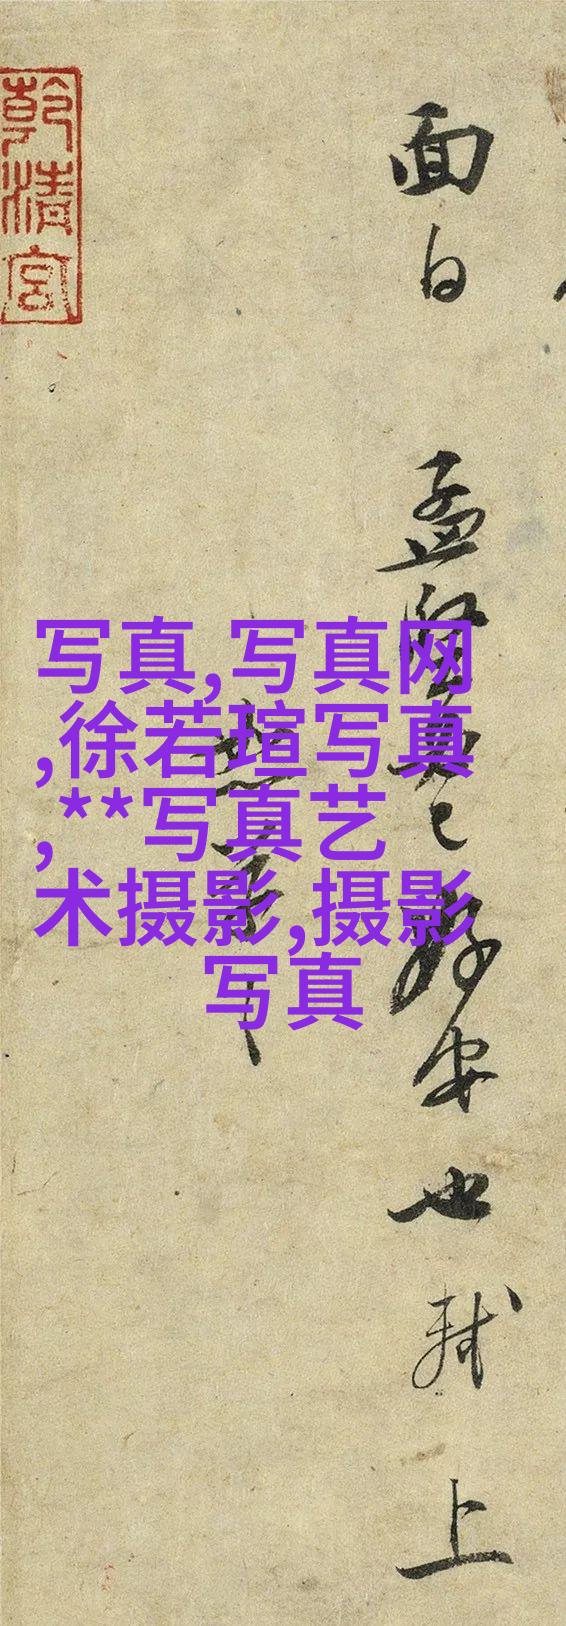 乾清宮
面白 孟堅 安也 軾 上
写真,写真网
,徐若瑄写真
,**写真艺
术摄影,摄影
写真